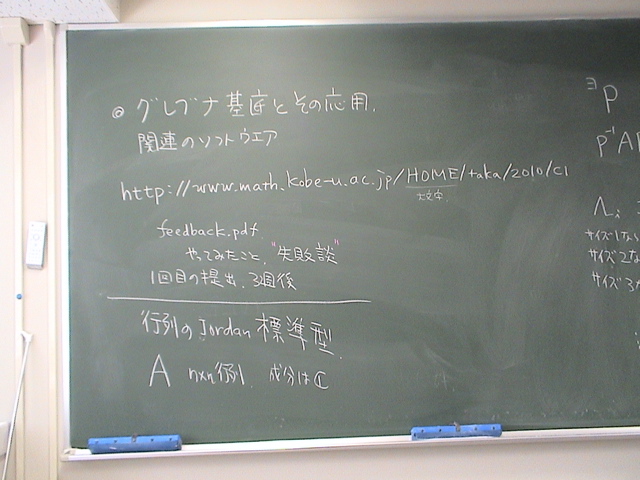 ◎ グレブナ基底とその応用.
関連のソフトウエア
http://www.math.kobe-u.ac.jp/HOME/taka/2010/c1
大文字.
feedback.pdf
やってみたこと, "失敗談"
1回目の提出, 3週後
行列の Jordan 標準型.
A n×n行列. 成分はℂ
∃P
P⁻¹AP
Λi
サイズ1なら
サイズ2な
サイズ3